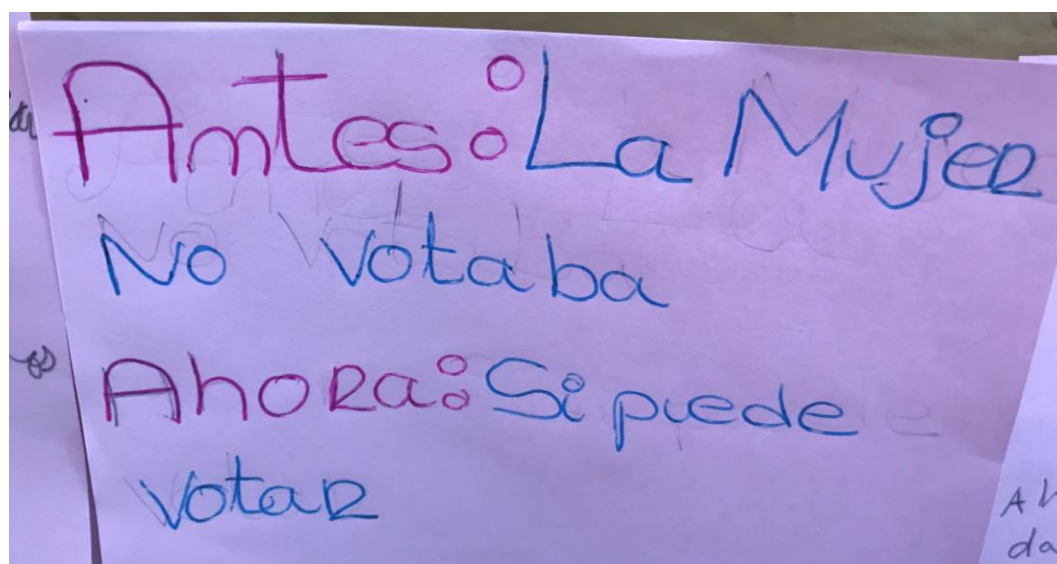 Antes: La Mujer
No Votaba
Ahora: Si puede
votar